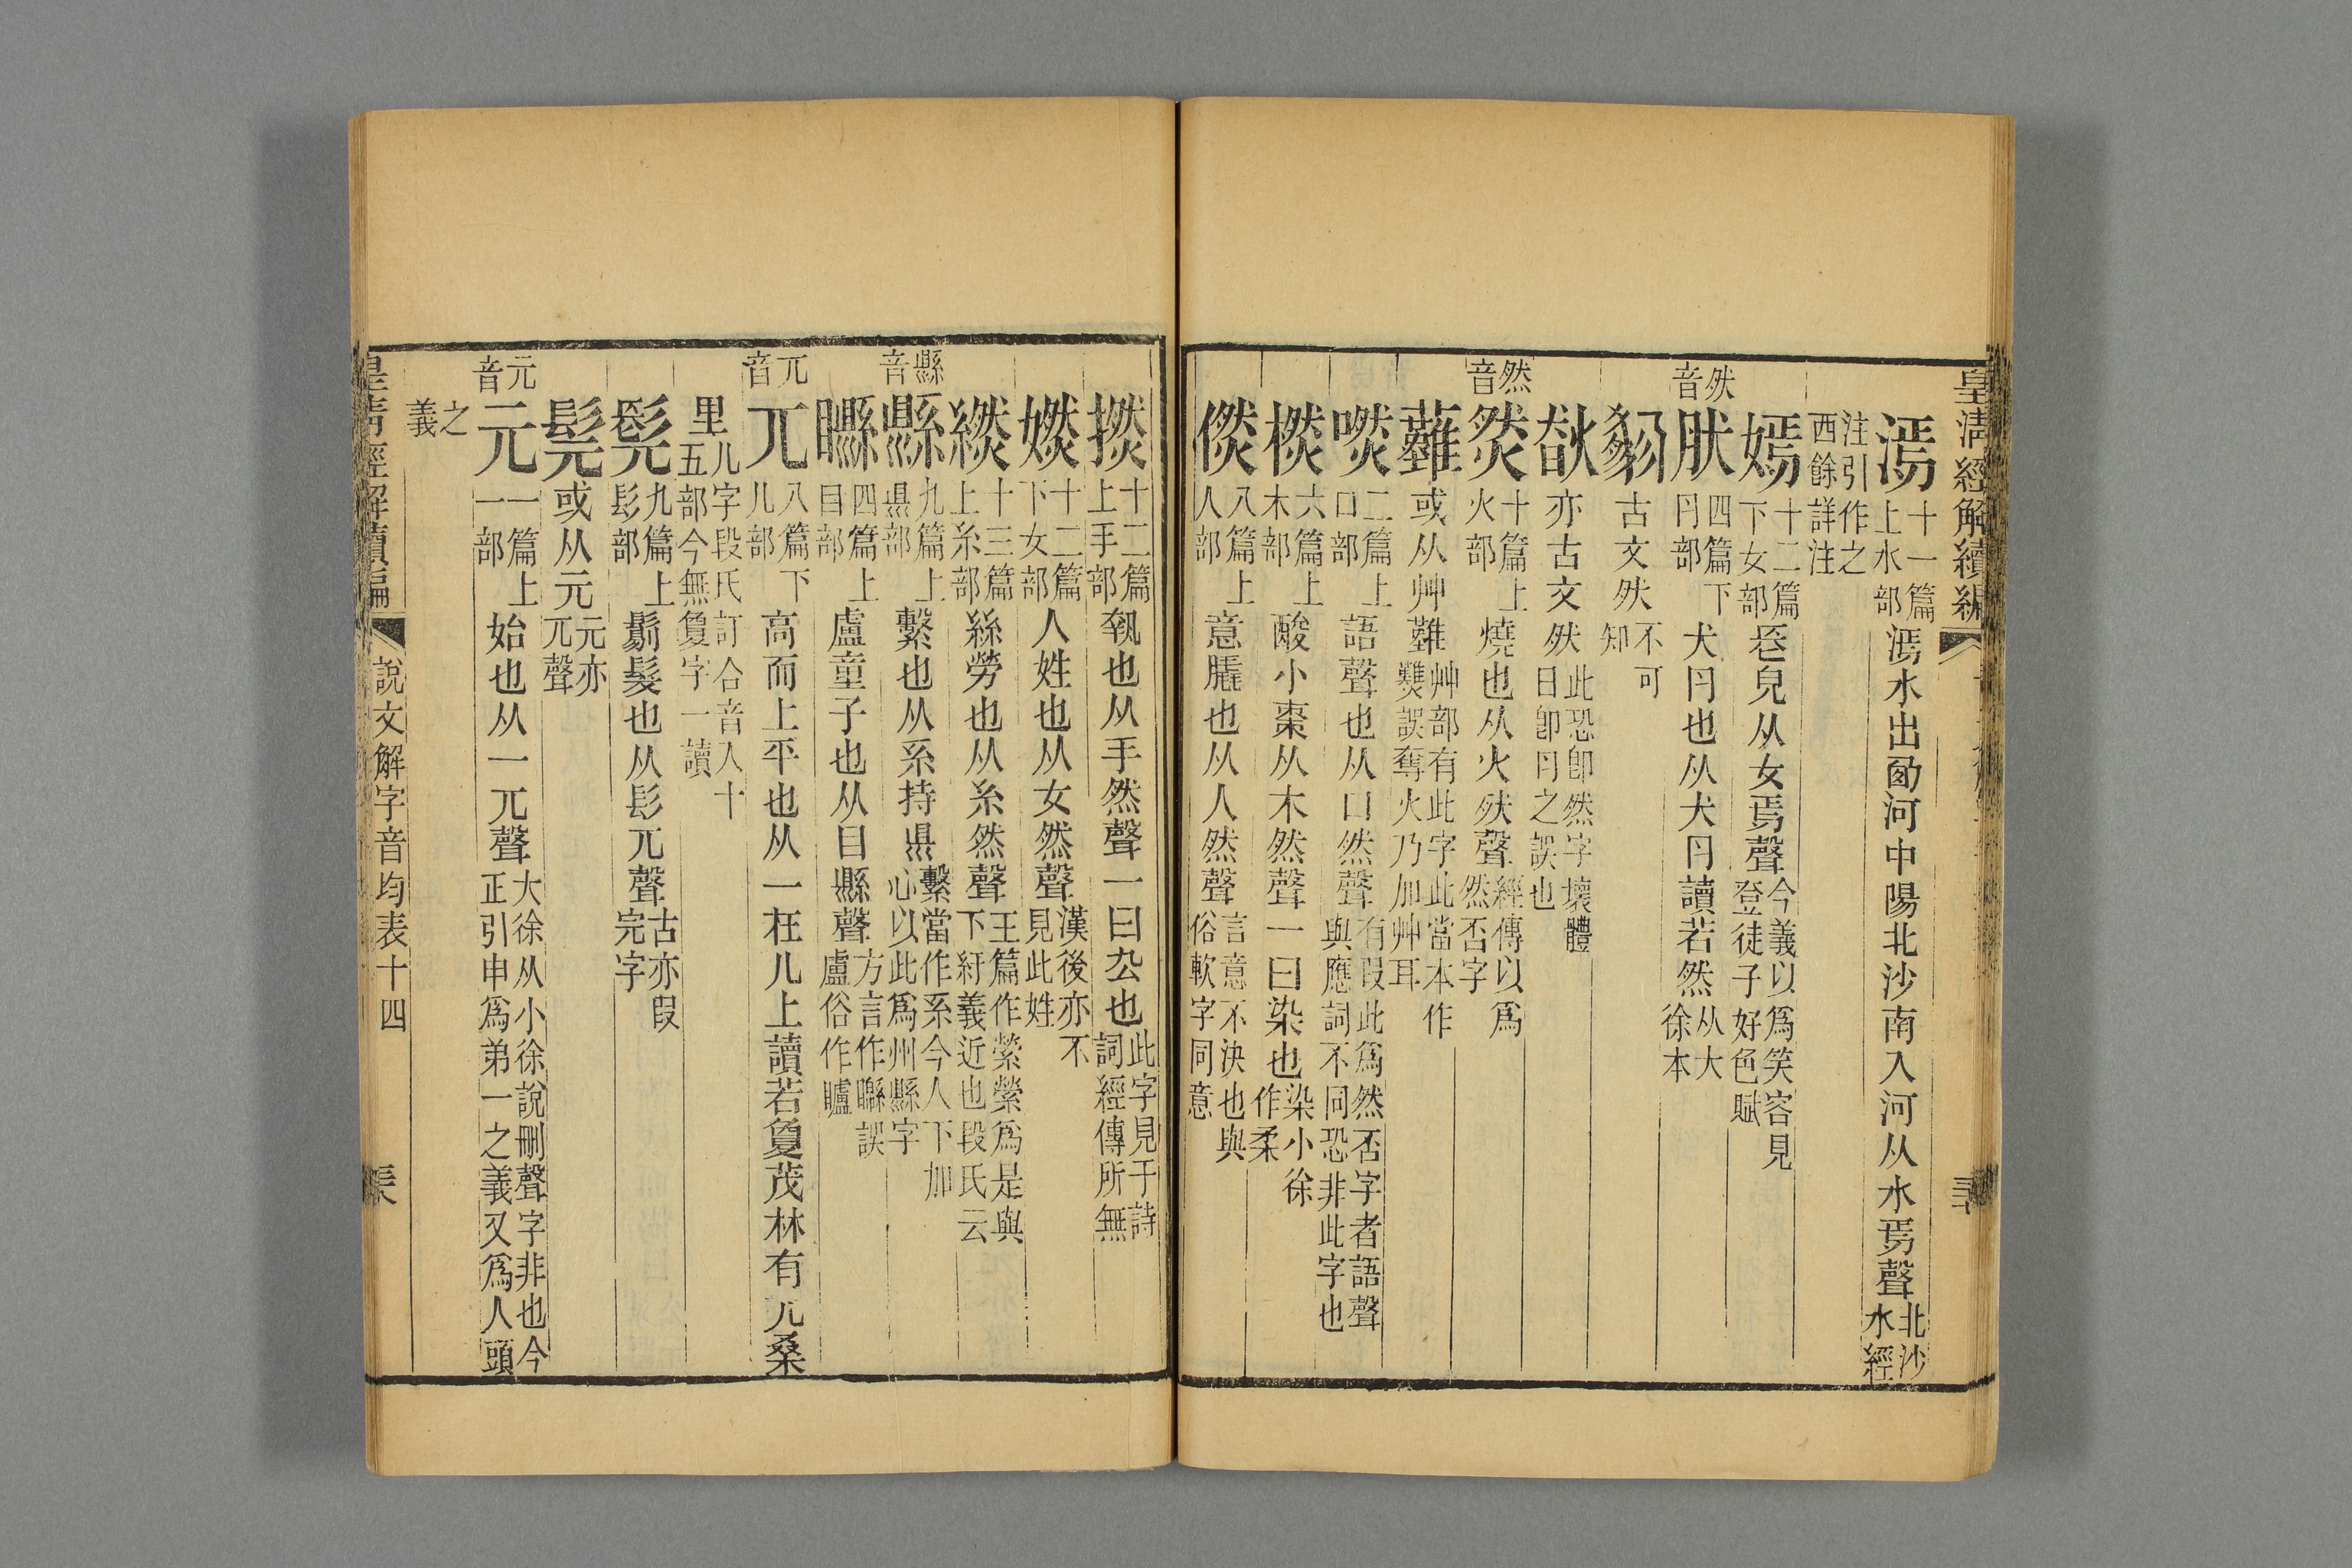 皇清經解續編
漹十一篇上水部漹水出𠧟河中陽北沙南入河从水焉聲北沙水經
注引作之西餘詳注
嫣十二篇下女部𠩺皃从女焉聲今義以爲笑容見登徒子好色賦
肰音
肰四篇下冃部犬冃也从犬冃讀若然从大徐本
古文肰不可知
亦古文肰此恐卽然字壞體日卽冃之誤也
然音
然十篇上火部燒也从火肰聲經傳以爲然否字
蘸或从艸難艸部有此字此當本作㸐誤奪火乃加艸耳
嘫二篇上口部語聲也从口然聲有叚此爲然否字者語聲與應詞不同恐非此字也
橪六篇上木部酸小棗从木然聲一曰染也染小徐作柔
㒄八篇上人部意膬也从人然聲言意不決也與俗軟字同意
撚十二篇上手部執也从手然聲一曰厹也此字見于詩詞經傳所無
嬿十二篇下女部人姓也从女然聲漢後亦不見此姓
繎十三篇上糸部絲勞也从糸然聲王篇作縈縈爲是與下紆義近也段氏云
縣音
縣九篇上𥄉部繫也从系持𥄉繫當作系今人下加心以此爲州縣字
矎四篇上目部盧童子也从目縣聲方言作矊誤盧俗作矑
兀音
兀八篇下儿部高而上平也从一在儿上讀若敻茂林有兀桑
里儿字段氏訂合音入十五部今無敻字一讀
髡九篇上髟部鬀髮也从髟兀聲古亦叚完字
髨或从元元亦兀聲
元音
元一篇上一部始也从一兀聲大徐从小徐說刪聲字非也今正引申爲弟一之義又爲人頭
之義
皇清經解續編
說文解字音均表十四